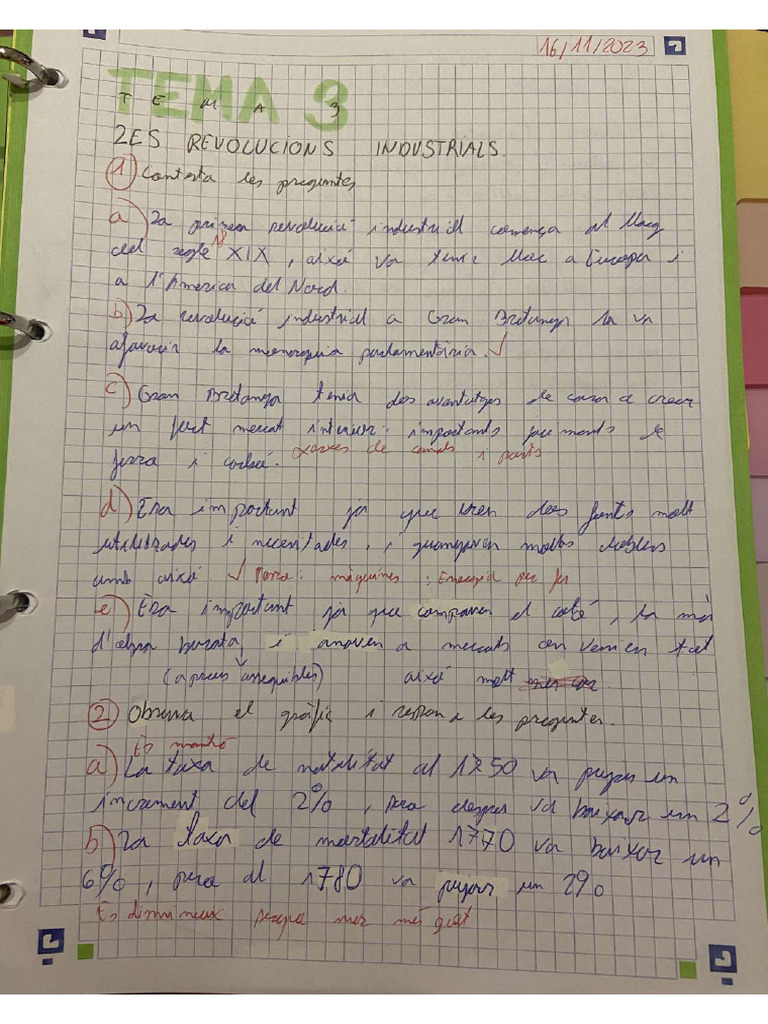 16/11/2023
TEMA 3
TEMA 3
LES REVOLUCIONS INDUSTRIALS.
1 Contesta les preguntes
a) La primera revolució industrial comença al llarg
del segle XIX, això va tenir lloc a Europa i
a l'America del Nord.
b) La revolució industrial a Gran Bretanya la va
afavorir la monarquia parlamentària. ✓
c) Gran Bretanya tenia dos avantatges de cara a crear
un fort mercat interior: importants jaciments de
ferro i carbó. xarxes de canals i ports
d) Era important ja que eren dos fonts molt
utilitzades i necesitades, i guanyaven molts diners
amb això ✓ Ferro: màquines ; Energia per fer
e) Era important ja que compraven el cotó, la mà
d'obra barata, i anaven a mercats on venien tot
(a preus assequibles) això molt
2 Observa el gràfic i respon a les preguntes.
Es manté
a) La taxa de natalitat al 1750 va pujar un
increment del 2%, pero despres va baixar un 2%
b) La taxa de mortalitat 1770 va baixar un
6%, pero al 1780 va pujar un 2%
Es disminueix